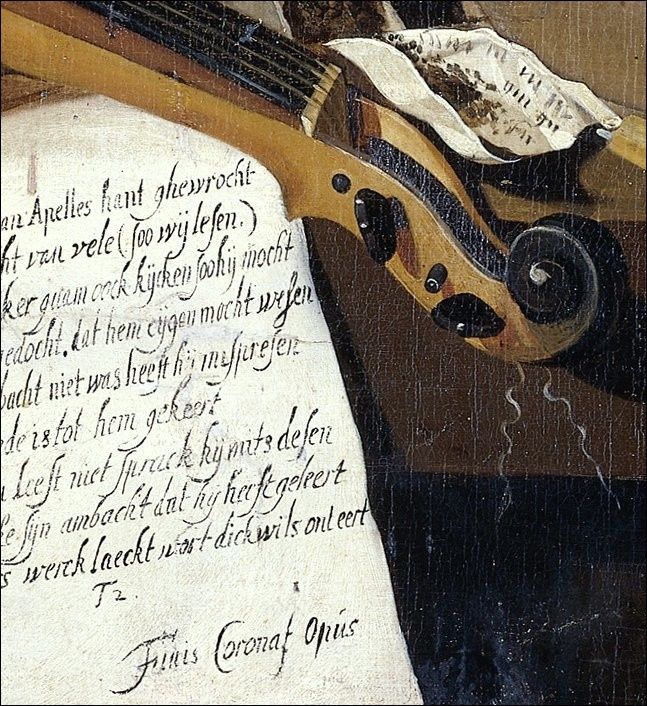 an Apelles hant ghewrocht
ht van vele (soo wij lesen.)
ker quam oock kijcken soo hij mocht
gedocht, dat hem eijgen mocht wesen
bacht niet was heeft hij mispresen
de is tot hem gekeert
leest niet sprack hij mits desen
ke sijn ambacht dat hij heeft geleert
s werck laeckt wort dickwils onteert
T2.
Finis Coronat Opús